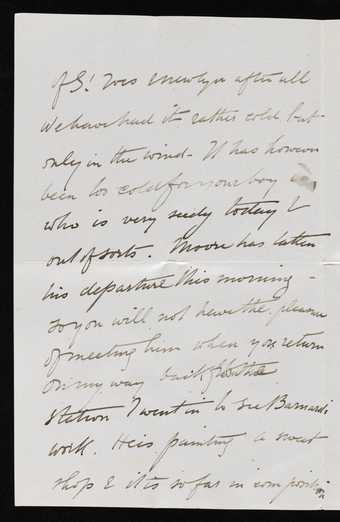 of G! was Newlyn after all
We have had it rather cold but
only in the wind - It has however
been too cold for your boy
who is very seedy today &
out of sorts. Moore has taken
his departure this morning -
so you will not have the pleasure
of meeting him when you return
On my way back from the
station I went in to see Barnard's
work. He is painting a sweet
shop & it is so far in composition